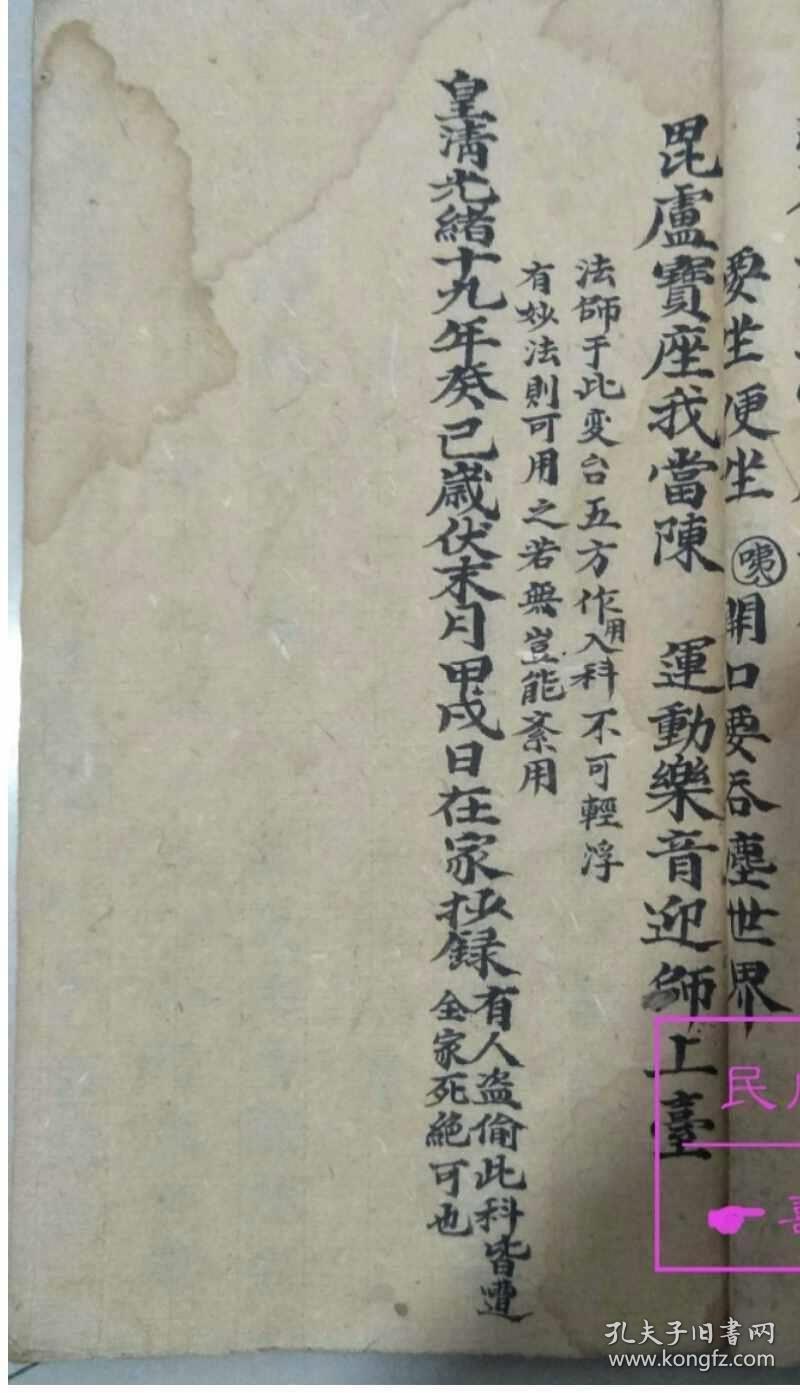 要坐便坐 咦 開口要吞塵世界
毘盧寶座我當陳 運動樂音迎師上臺
法師于此变台五方作用入科不可輕浮
有妙法則可用之若無豈能紊用
皇清光緒十九年癸巳歲伏末月甲戌日在家抄録
有人盗偷此科皆遭
全家死絶可也
民
孔夫子旧書网
www.kongfz.com